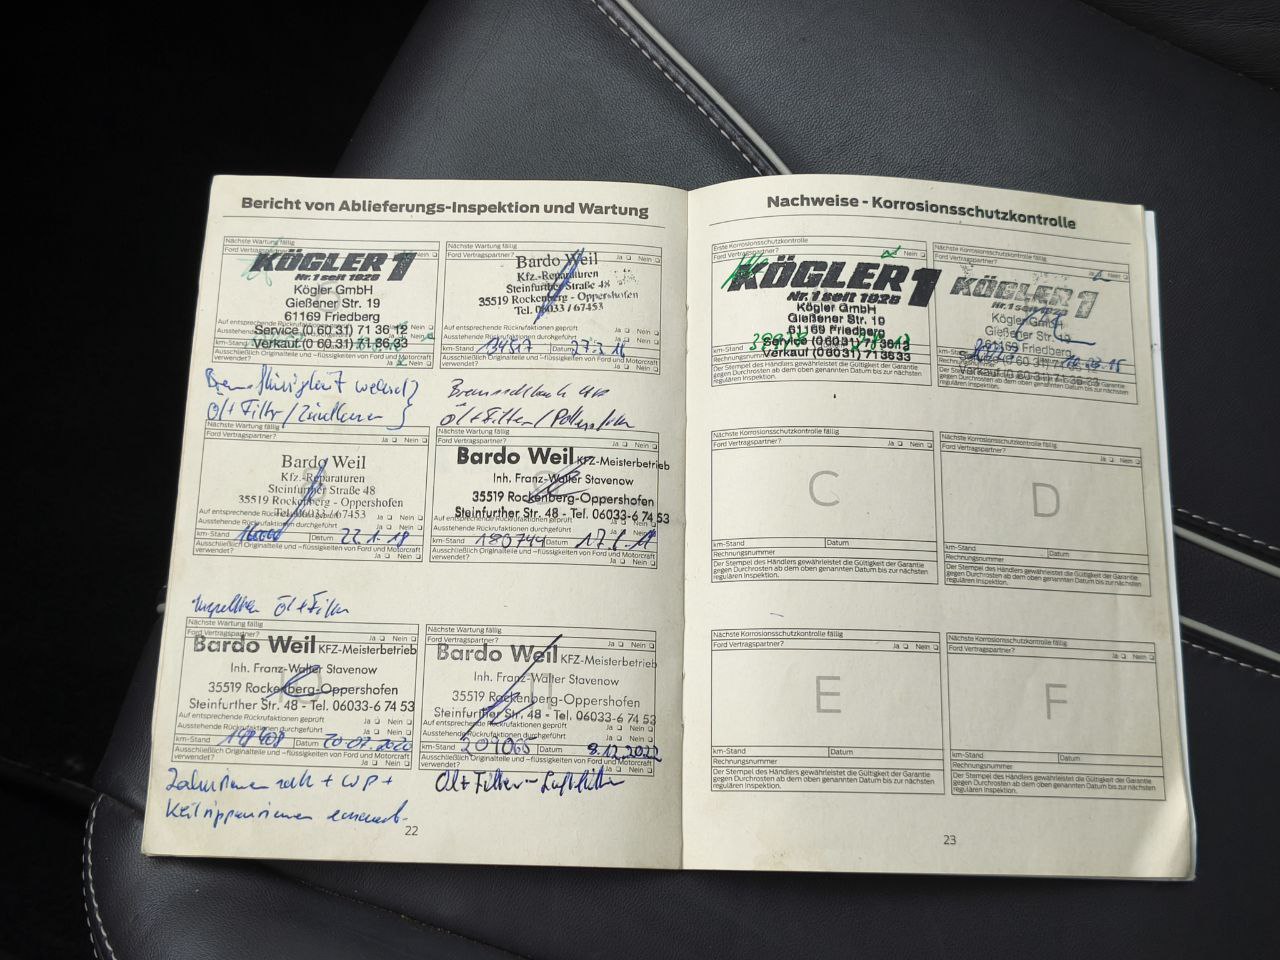 Bericht von Ablieferungs-Inspektion und Wartung
Nächste Wartung fällig
Ford Vertragspartner? Ja Nein
KÖGLER 1
Nr. 1 seit 1928
Kögler GmbH
Gießener Str. 19
61169 Friedberg
Service (0 60 31) 71 36 12
Verkauf (0 60 31) 71 86 33
Auf entsprechende Rückrufaktionen geprüft
Ausschließlich Originalteile und -flüssigkeiten von Ford und Motorcraft
verwendet? Ja Nein
Öl + Filter / Zündkerzen
Nächste Wartung fällig
Ford Vertragspartner? Ja Nein
Bardo Weil
Kfz.-Reparaturen
Steinfurther Straße 48
35519 Rockenberg - Oppershofen
Tel. 06033 / 67453
Auf entsprechende Rückrufaktionen geprüft Ja Nein
Ausstehende Rückrufaktionen durchgeführt Ja Nein
km-Stand Datum
Ausschließlich Originalteile und -flüssigkeiten von Ford und Motorcraft
verwendet? Ja Nein
Öl + Filter /
Nächste Wartung fällig
Ford Vertragspartner? Ja Nein
Bardo Weil
Kfz.-Reparaturen
Steinfurther Straße 48
35519 Rockenberg - Oppershofen
Tel. 06033 / 67453
Auf entsprechende Rückrufaktionen geprüft
Ausstehende Rückrufaktionen durchgeführt Ja Nein
km-Stand Datum 22.1.18
Ausschließlich Originalteile und -flüssigkeiten von Ford und Motorcraft
verwendet? Ja Nein
Nächste Wartung fällig
Ford Vertragspartner?
Bardo Weil KFZ-Meisterbetrieb
Inh. Franz-Walter Stavenow
35519 Rockenberg-Oppershofen
Steinfurther Str. 48 - Tel. 06033-6 74 53
Auf entsprechende Rückrufaktionen geprüft
Ausstehende Rückrufaktionen durchgeführt Ja Nein
km-Stand 180744 Datum
Ausschließlich Originalteile und -flüssigkeiten von Ford und Motorcraft
verwendet? Ja Nein
Inspektion Öl + Filter
Nächste Wartung fällig
Ford Vertragspartner? Ja Nein
Bardo Weil KFZ-Meisterbetrieb
Inh. Franz-Walter Stavenow
35519 Rockenberg-Oppershofen
Steinfurther Str. 48 - Tel. 06033-6 74 53
Auf entsprechende Rückrufaktionen geprüft Ja Nein
Ausstehende Rückrufaktionen durchgeführt Ja Nein
km-Stand Datum 20.07.2020
Ausschließlich Originalteile und -flüssigkeiten von Ford und Motorcraft
verwendet? Ja Nein
Zahnriemen + WP +
Keilrippenriemen erneuert
Nächste Wartung fällig
Ford Vertragspartner? Ja Nein
Bardo Weil KFZ-Meisterbetrieb
Inh. Franz-Walter Stavenow
35519 Rockenberg-Oppershofen
Steinfurther Str. 48 - Tel. 06033-6 74 53
Auf entsprechende Rückrufaktionen geprüft Ja Nein
Ausstehende Rückrufaktionen durchgeführt Ja Nein
km-Stand 209065 Datum 8.12.2022
Ausschließlich Originalteile und -flüssigkeiten von Ford und Motorcraft
verwendet? Ja Nein
Öl + Filter - Luftfilter
22
Nachweise - Korrosionsschutzkontrolle
Erste Korrosionsschutzkontrolle
Ford Vertragspartner? Nein
KÖGLER 1
Nr. 1 seit 1928
Kögler GmbH
Gießener Str. 19
61169 Friedberg
Service (0 60 31) 71 36 13
Verkauf (0 60 31) 71 36 33
km-Stand
Rechnungsnummer
Der Stempel des Händlers gewährleistet die Gültigkeit der Garantie
gegen Durchrosten ab dem oben genannten Datum bis zur nächsten
regulären Inspektion.
Nächste Korrosionsschutzkontrolle fällig
Ford Vertragspartner? Ja
KÖGLER 1
Nr. 1 seit 1928
Kögler GmbH
Gießener Str. 19
61169 Friedberg
Der Stempel des Händlers gewährleistet die Gültigkeit der Garantie
gegen Durchrosten ab dem oben genannten Datum bis zur nächsten
regulären Inspektion.
Nächste Korrosionsschutzkontrolle fällig
Ford Vertragspartner? Ja Nein
C
km-Stand Datum
Rechnungsnummer
Der Stempel des Händlers gewährleistet die Gültigkeit der Garantie
gegen Durchrosten ab dem oben genannten Datum bis zur nächsten
regulären Inspektion.
Nächste Korrosionsschutzkontrolle fällig
Ford Vertragspartner? Ja Nein
D
km-Stand Datum
Rechnungsnummer
Der Stempel des Händlers gewährleistet die Gültigkeit der Garantie
gegen Durchrosten ab dem oben genannten Datum bis zur nächsten
regulären Inspektion.
Nächste Korrosionsschutzkontrolle fällig
Ford Vertragspartner? Ja Nein
E
km-Stand Datum
Rechnungsnummer
Der Stempel des Händlers gewährleistet die Gültigkeit der Garantie
gegen Durchrosten ab dem oben genannten Datum bis zur nächsten
regulären Inspektion.
Nächste Korrosionsschutzkontrolle fällig
Ford Vertragspartner? Ja Nein
F
km-Stand Datum
Rechnungsnummer
Der Stempel des Händlers gewährleistet die Gültigkeit der Garantie
gegen Durchrosten ab dem oben genannten Datum bis zur nächsten
regulären Inspektion.
23